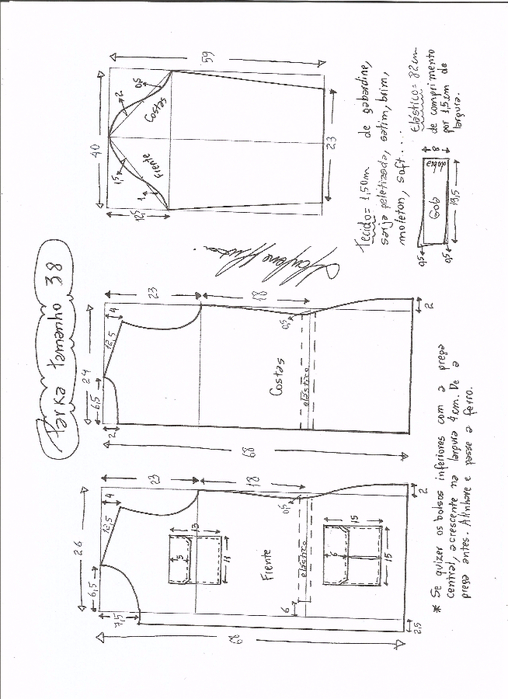 Parka tamanho 38
59
40
12,5
23
1,5
1
2
0,5
Frente
Costas
Tecido = 1,50m de gabardine,
sarja peletizada, cetim, brim,
moleton, soft...
elástico = 82cm
de comprimento
por 1,5cm de
largura.
8
dobra
Gola
19,5
0,5
0,5
23
18
4
12,5
24
6,5
2
Costas
elástico
0,5
2
68
23
18
4
12,5
26
6,5
7,5
13
5
11
Frente
elástico
0,5
6
15
6
15
2
2,5
68
* Se quizer os bolsos inferiores com a prega
central, acrescente na largura 4cm. De a
prega antes. Alinhave e passe a ferro.